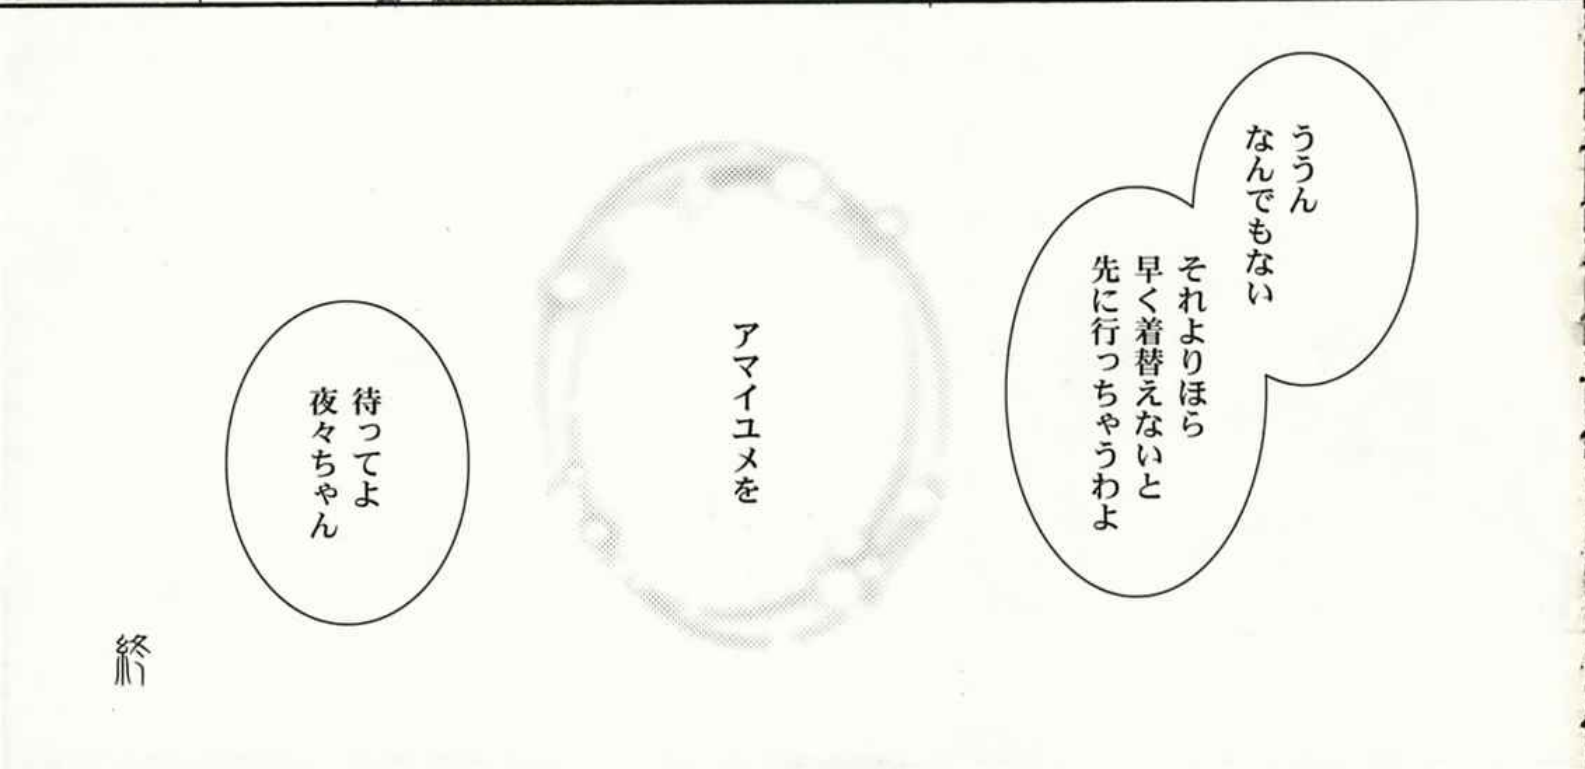 ううん
なんでもない
それよりほら
早く着替えないと
先に行っちゃうわよ
アマイユメを
待ってよ
夜々ちゃん
終